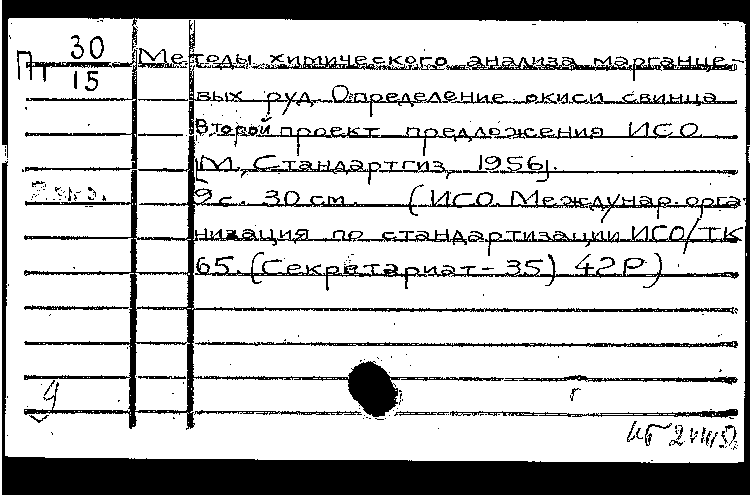 Пт 30/15 Методы химического анализа марганце-
вых руд. Определение окиси свинца
Второй проект предложения ИСО
М., Стандартгиз, 1956г.
2 экз. 9 с. 30 см. (ИСО. Междунар. орга
низация по стандартизации ИСО/ТК
65. (Секретариат - 35) 42Р)
г